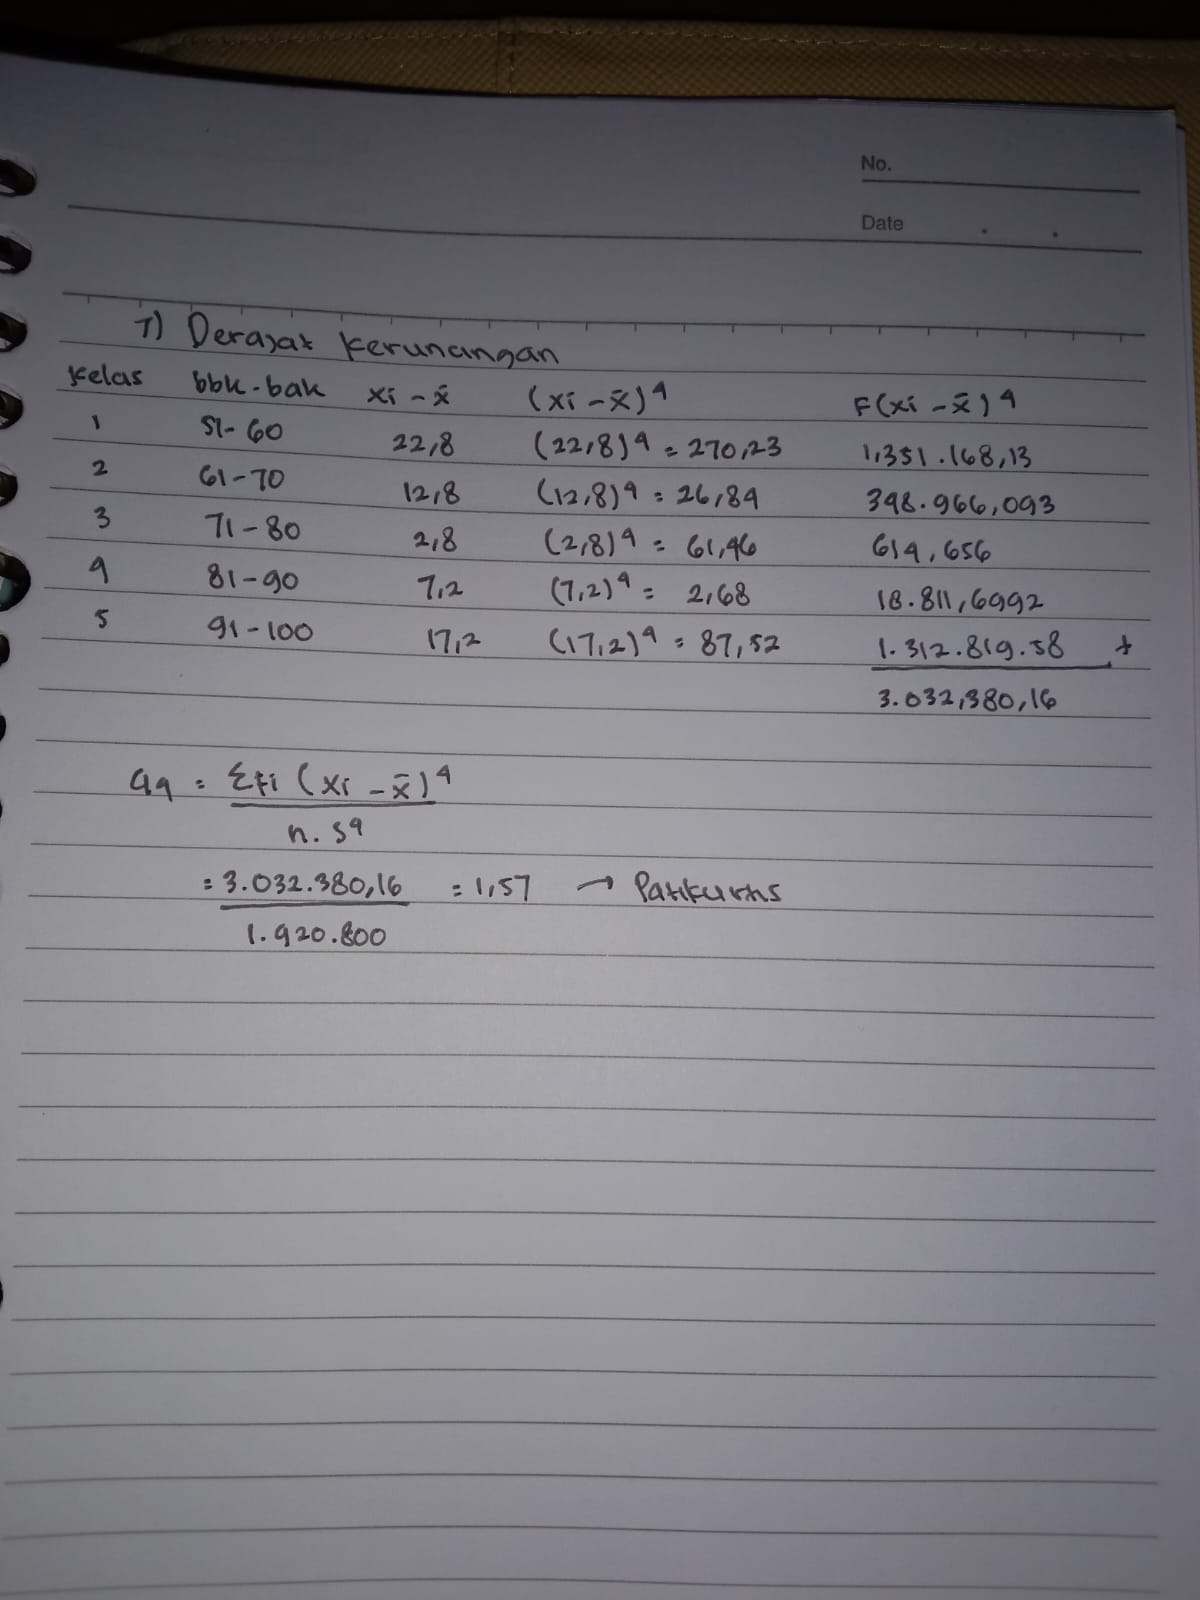 No.
Date
7) Derajat Keruncingan
Kelas bbk-bak xi - x̄ (xi - x̄)4 F(xi - x̄)4
1 51-60 22,8 (22,8)4 = 270,23 1,351.168,13
2 61-70 12,8 (12,8)4 = 26,84 348.966,093
3 71-80 2,8 (2,8)4 = 61,46 614,656
4 81-90 7,2 (7,2)4 = 2,68 18.811,6992
5 91-100 17,2 (17,2)4 = 87,52 1.312.819.58 +
3.032,380,16
a4 = Σfi (xi - x̄)4
n. s4
= 3.032.380,16 = 1,57 → Platikurtis
1.920.800